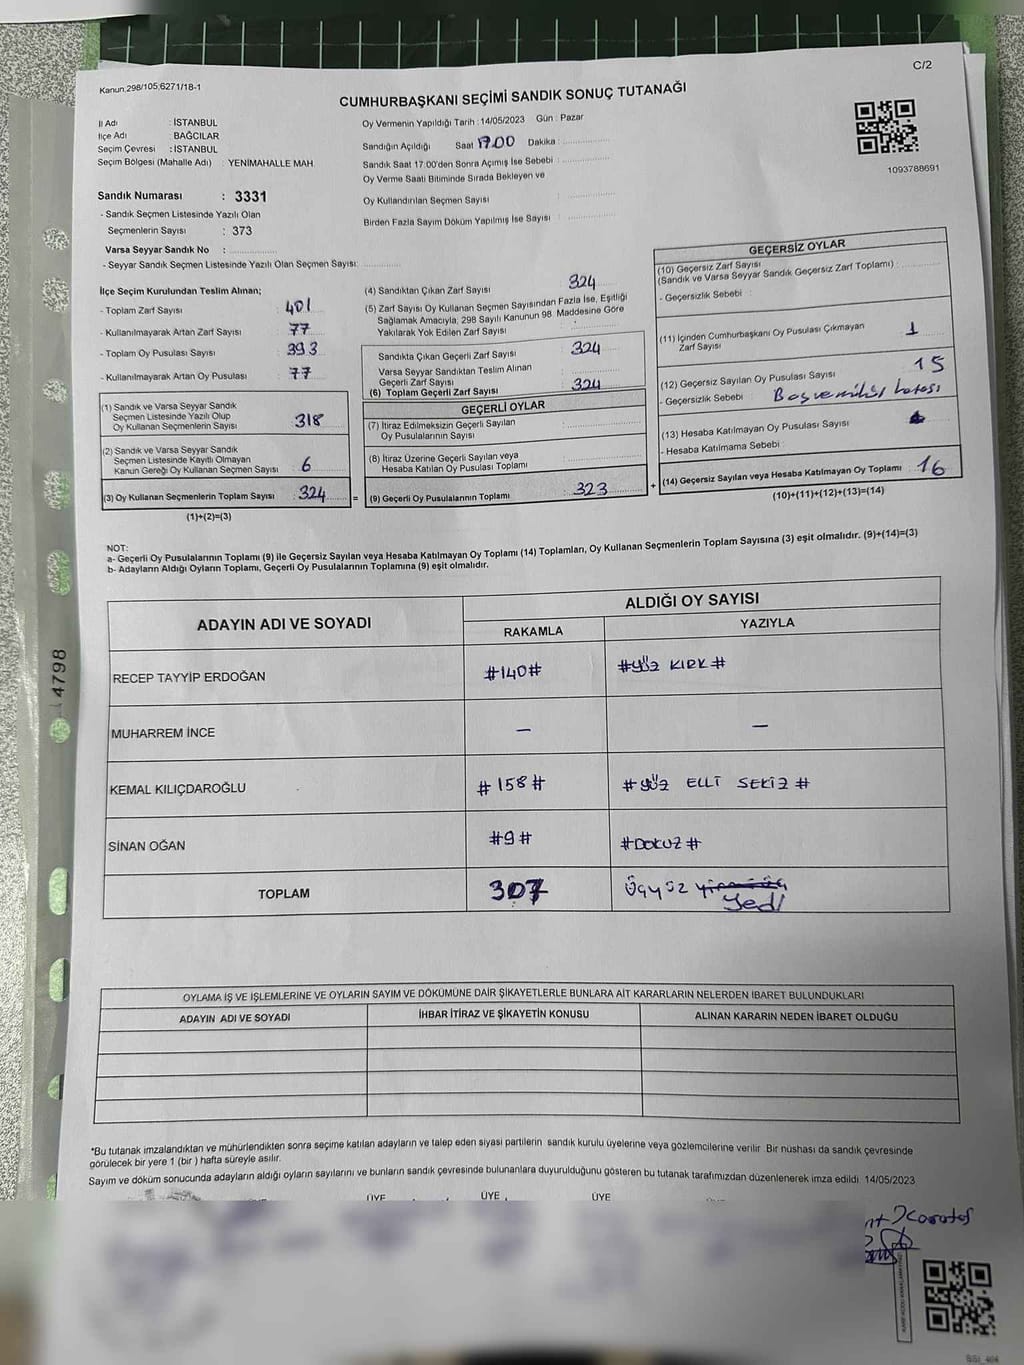 C/2
Kanun,298/105;6271/18-1
CUMHURBAŞKANI SEÇİMİ SANDIK SONUÇ TUTANAĞI
İl Adı : İSTANBUL
İlçe Adı : BAĞCILAR
Seçim Çevresi : İSTANBUL
Seçim Bölgesi (Mahalle Adı) : YENİMAHALLE MAH.
Oy Vermenin Yapıldığı Tarih : 14/05/2023 Gün : Pazar
Sandığın Açıldığı Saat 17.00 Dakika :
Sandık Saat 17:00'den Sonra Açımış İse Sebebi :
Oy Verme Saati Bitiminde Sırada Bekleyen ve
Oy Kullandırılan Seçmen Sayısı :
Birden Fazla Sayım Döküm Yapılmış İse Sayısı :
1093788691
Sandık Numarası : 3331
- Sandık Seçmen Listesinde Yazılı Olan
Seçmenlerin Sayısı : 373
Varsa Seyyar Sandık No :
- Seyyar Sandık Seçmen Listesinde Yazılı Olan Seçmen Sayısı:
İlçe Seçim Kurulundan Teslim Alınan;
- Toplam Zarf Sayısı : 401
- Kullanılmayarak Artan Zarf Sayısı : 77
- Toplam Oy Pusulası Sayısı : 393
- Kullanılmayarak Artan Oy Pusulası : 77
(1) Sandık ve Varsa Seyyar Sandık
Seçmen Listesinde Yazılı Olup
Oy Kullanan Seçmenlerin Sayısı : 318
(2) Sandık ve Varsa Seyyar Sandık
Seçmen Listesinde Kayıtlı Olmayan
Kanun Gereği Oy Kullanan Seçmen Sayısı : 6
(3) Oy Kullanan Seçmenlerin Toplam Sayısı : 324
(1)+(2)=(3)
=
(4) Sandıktan Çıkan Zarf Sayısı : 324
(5) Zarf Sayısı Oy Kullanan Seçmen Sayısından Fazla İse, Eşitliği
Sağlamak Amacıyla; 298 Sayılı Kanunun 98. Maddesine Göre
Yakılarak Yok Edilen Zarf Sayısı :
Sandıkta Çıkan Geçerli Zarf Sayısı : 324
Varsa Seyyar Sandıktan Teslim Alınan
Geçerli Zarf Sayısı :
(6) Toplam Geçerli Zarf Sayısı : 324
GEÇERLİ OYLAR
(7) İtiraz Edilmeksizin Geçerli Sayılan
Oy Pusulalarının Sayısı :
(8) İtiraz Üzerine Geçerli Sayılan veya
Hesaba Katılan Oy Pusulası Toplamı :
(9) Geçerli Oy Pusulalarının Toplamı : 323
+
GEÇERSİZ OYLAR
(10) Geçersiz Zarf Sayısı
(Sandık ve Varsa Seyyar Sandık Geçersiz Zarf Toplamı) :
- Geçersizlik Sebebi :
(11) İçinden Cumhurbaşkanı Oy Pusulası Çıkmayan
Zarf Sayısı : 1
(12) Geçersiz Sayılan Oy Pusulası Sayısı : 15
- Geçersizlik Sebebi :
(13) Hesaba Katılmayan Oy Pusulası Sayısı :
- Hesaba Katılmama Sebebi :
(14) Geçersiz Sayılan veya Hesaba Katılmayan Oy Toplamı : 16
(10)+(11)+(12)+(13)=(14)
NOT:
a- Geçerli Oy Pusulalarının Toplamı (9) ile Geçersiz Sayılan veya Hesaba Katılmayan Oy Toplamı (14) Toplamları, Oy Kullanan Seçmenlerin Toplam Sayısına (3) eşit olmalıdır. (9)+(14)=(3)
b- Adayların Aldığı Oyların Toplamı, Geçerli Oy Pusulalarının Toplamına (9) eşit olmalıdır.
ADAYIN ADI VE SOYADI
ALDIĞI OY SAYISI
RAKAMLA YAZIYLA
RECEP TAYYİP ERDOĞAN #140# #YÜZ KIRK#
MUHARREM İNCE – –
KEMAL KILIÇDAROĞLU #158# #YÜZ ELLİ SEKİZ#
SİNAN OĞAN #9# #DOKUZ#
TOPLAM 307 Üçyüz
Yedi
14798
OYLAMA İŞ VE İŞLEMLERİNE VE OYLARIN SAYIM VE DÖKÜMÜNE DAİR ŞİKAYETLERLE BUNLARA AİT KARARLARIN NELERDEN İBARET BULUNDUKLARI
ADAYIN ADI VE SOYADI İHBAR İTİRAZ VE ŞİKAYETİN KONUSU ALINAN KARARIN NEDEN İBARET OLDUĞU
*Bu tutanak imzalandıktan ve mühürlendikten sonra seçime katılan adayların ve talep eden siyasi partilerin sandık kurulu üyelerine veya gözlemcilerine verilir. Bir nüshası da sandık çevresinde
görülecek bir yere 1 (bir ) hafta süreyle asılır.
Sayım ve döküm sonucunda adayların aldığı oyların sayılarını ve bunların sandık çevresinde bulunanlara duyurulduğunu gösteren bu tutanak tarafımızdan düzenlenerek imza edildi. 14/05/2023
ÜYE ÜYE ÜYE